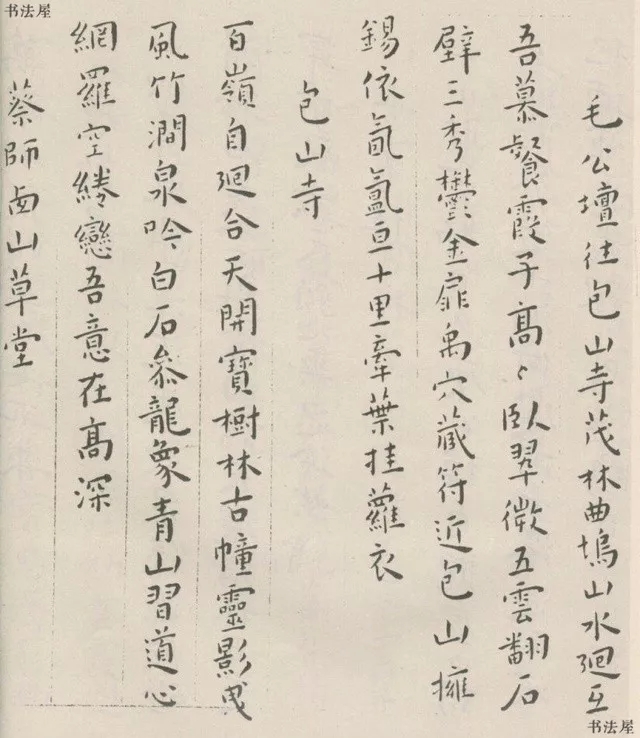 书法屋
毛公壇往包山寺茂林曲塢山水廻互
吾慕餐霞子高々臥翠微五雲翻石
壁三秀鬱金扉禹穴藏符近包山擁
錫依氤氳亘十里牽葉挂蘿衣
包山寺
百嶺自廻合天開寶樹林古幢靈影曳
風竹澗泉吟白石叅龍象青山習道心
網羅空綣戀吾意在高深
蔡師卥山草堂
书法屋